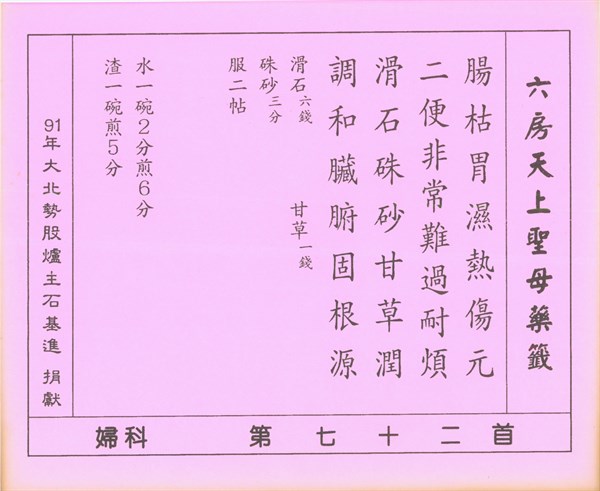 六房天上聖母藥籤
腸枯胃濕熱傷元
二便非常難過耐煩
滑石硃砂甘草潤
調和臟腑固根源
滑石六錢 甘草一錢
硃砂三分
服二帖
水一碗2分煎6分
渣一碗煎5分
91年大北勢股爐主石基進 捐獻
婦科 第七十二首